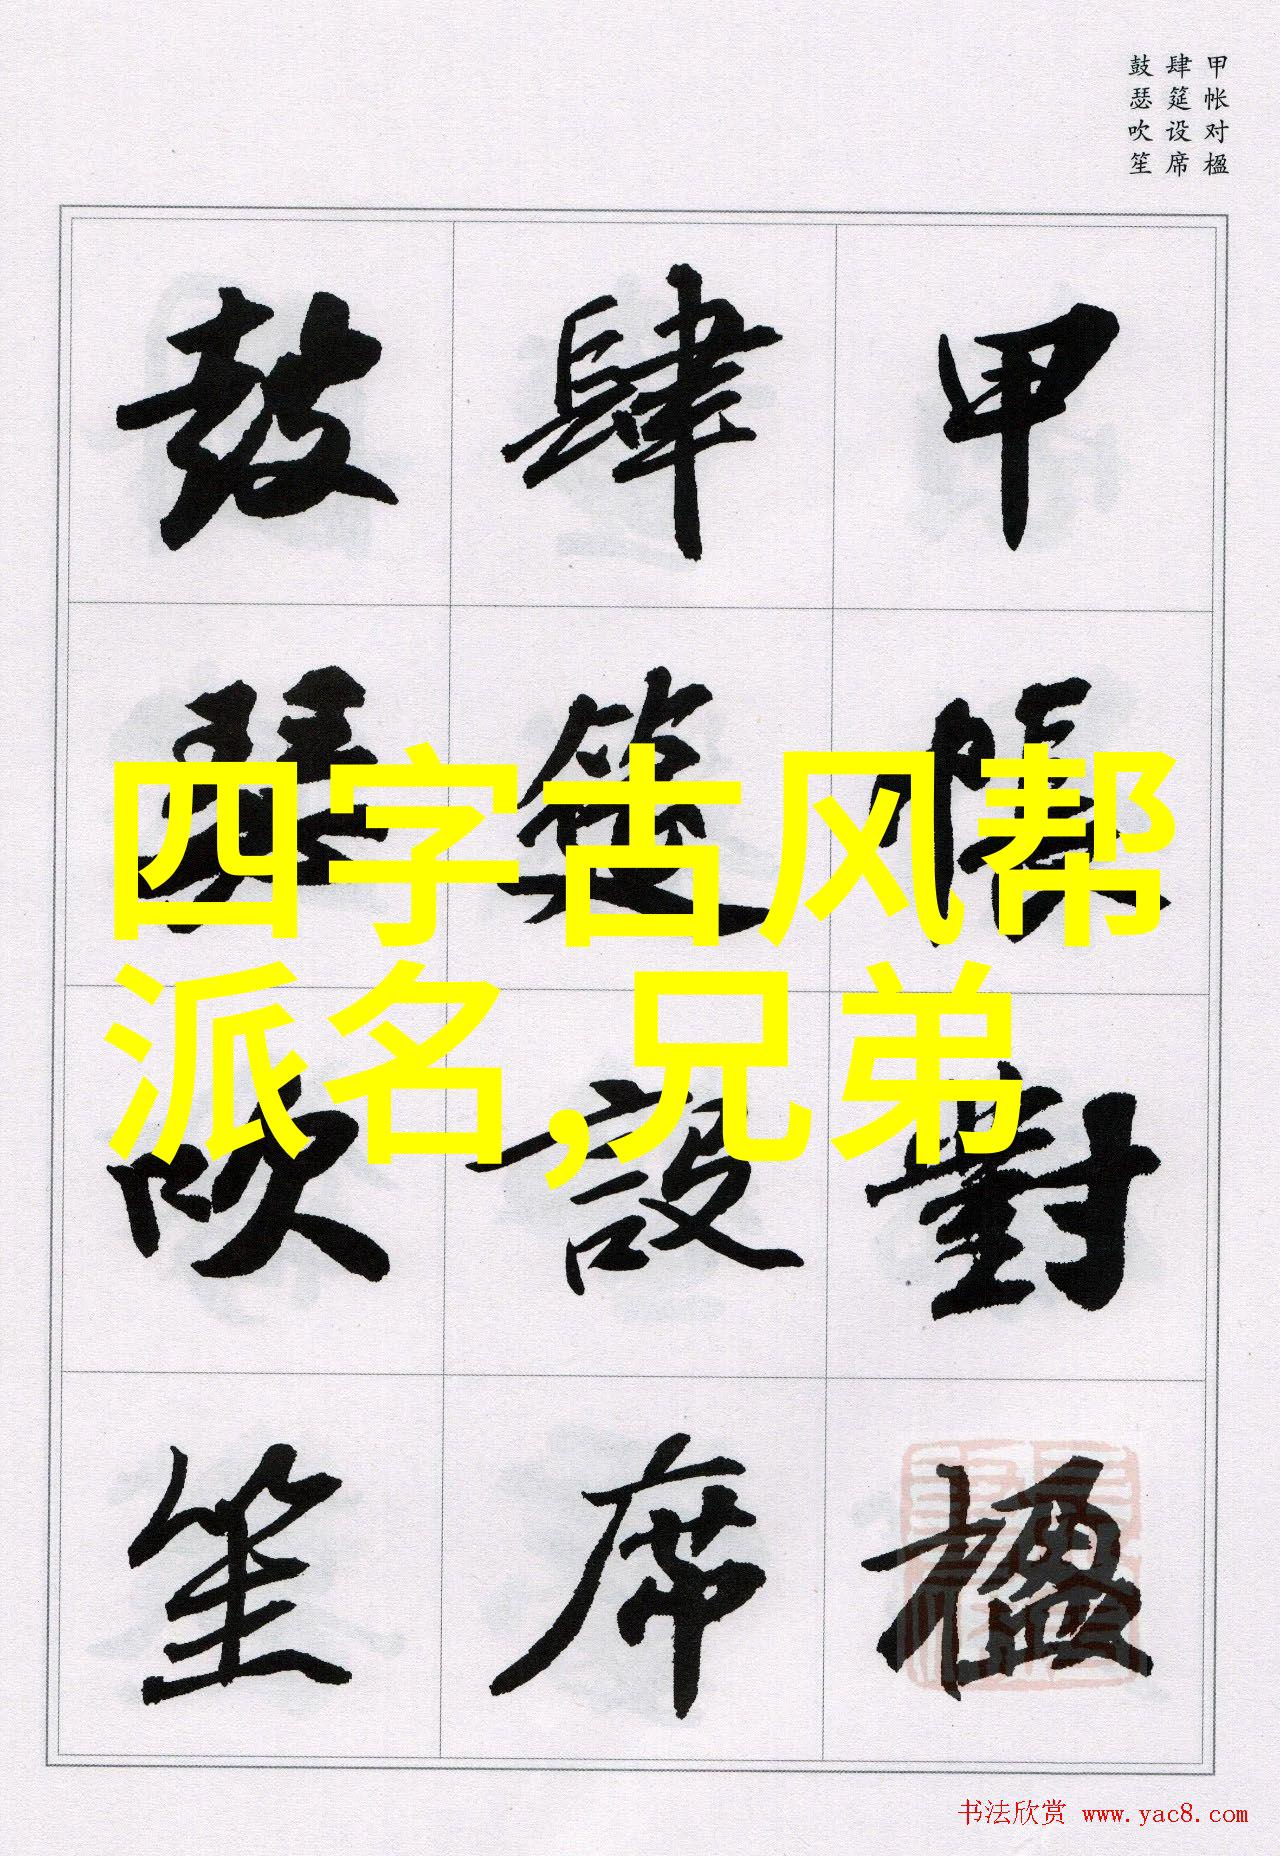 甲帐对楹
肆筵设席
鼓瑟吹笙
甲帳對楹
肆筵設席
鼓瑟吹笙
四字古风帮
派名,兄弟
书法欣赏 www.yac8.com